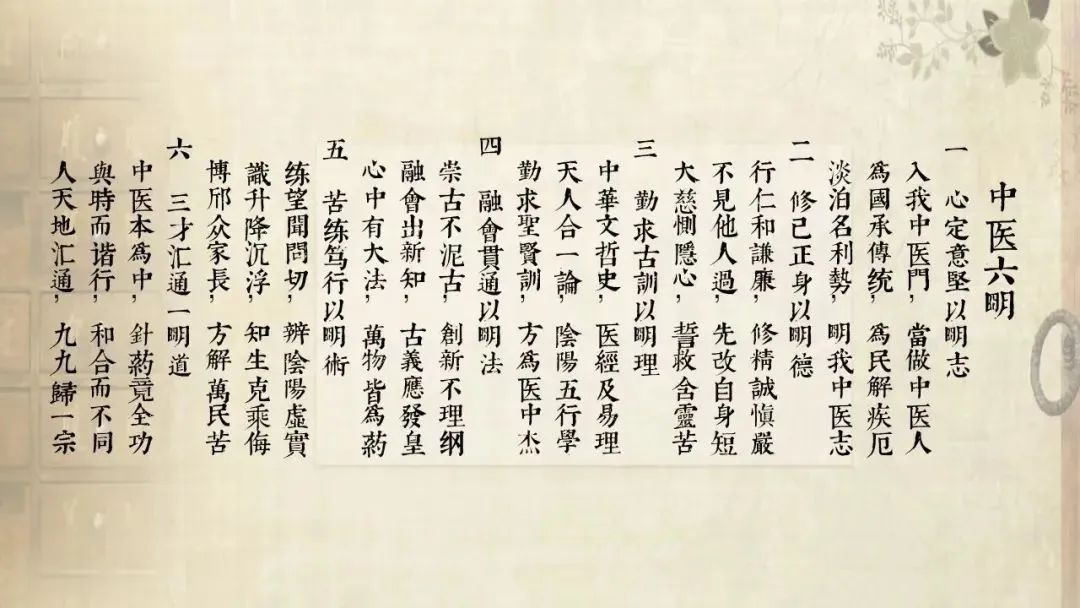 中医六明
一 心定意堅以明志
入我中医門，當做中医人
爲國承傳统，爲民解疾厄
淡泊名利勢，明我中医志
二 修己正身以明德
行仁和謙廉，修精誠愼嚴
不見他人過，先改自身短
大慈惻隱心，誓救含靈苦
三 勤求古訓以明理
中華文哲史，医經及易理
天人合一論，陰陽五行學
勤求聖賢訓，方爲医中杰
四 融會貫通以明法
崇古不泥古，創新不理纲
融會出新知，古義應發皇
心中有大法，萬物皆爲葯
五 苦练笃行以明術
练望聞問切，辨陰陽虛實
識升降沉浮，知生克乘侮
博邡众家長，方解萬民苦
六 三才汇通一明道
中医本爲中，針葯竟全功
與時而谐行，和合而不同
人天地汇通，九九歸一宗